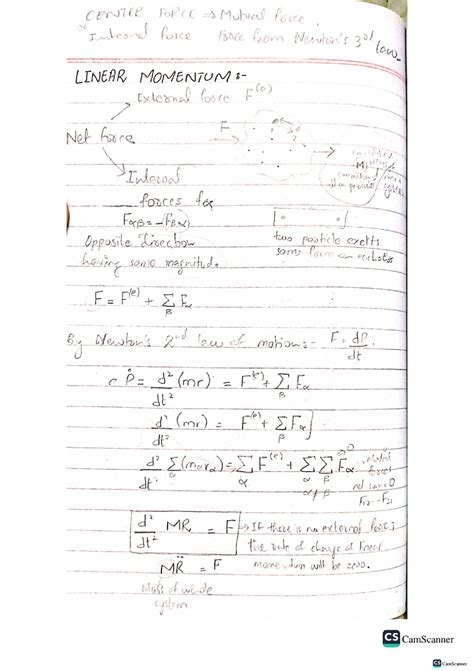 CENTRE FORCE ⇒ Mutual force.
Internal force Force from Newton's 3rd law.
LINEAR MOMENTUM :-
External force F^(e)
Net force
F
Internal
forces fα
Fαβ = -Fβα
Opposite direction
having same magnitude.
two particle exerts
same force on
F = F^(e) + Σ_β Fα
By Newton's 2nd law of motion:- F = dP/dt.
Ṗ = d²/dt² (mr) = F^(e) + Σ_β Fα
d²/dt² (mr) = F^(e) + Σ_β Fα
d²/dt² Σ_α (mα rα) = Σ_α F^(e) + Σ_α Σ_β Fα → 0
α ≠ β
forces
F12 = -F21
d²/dt² MR = F → If there is no external force;
the rate of change of linear
momentum will be zero.
MR̈ = F
Mass of whole
system
CS CamScanner
CS CamScanner